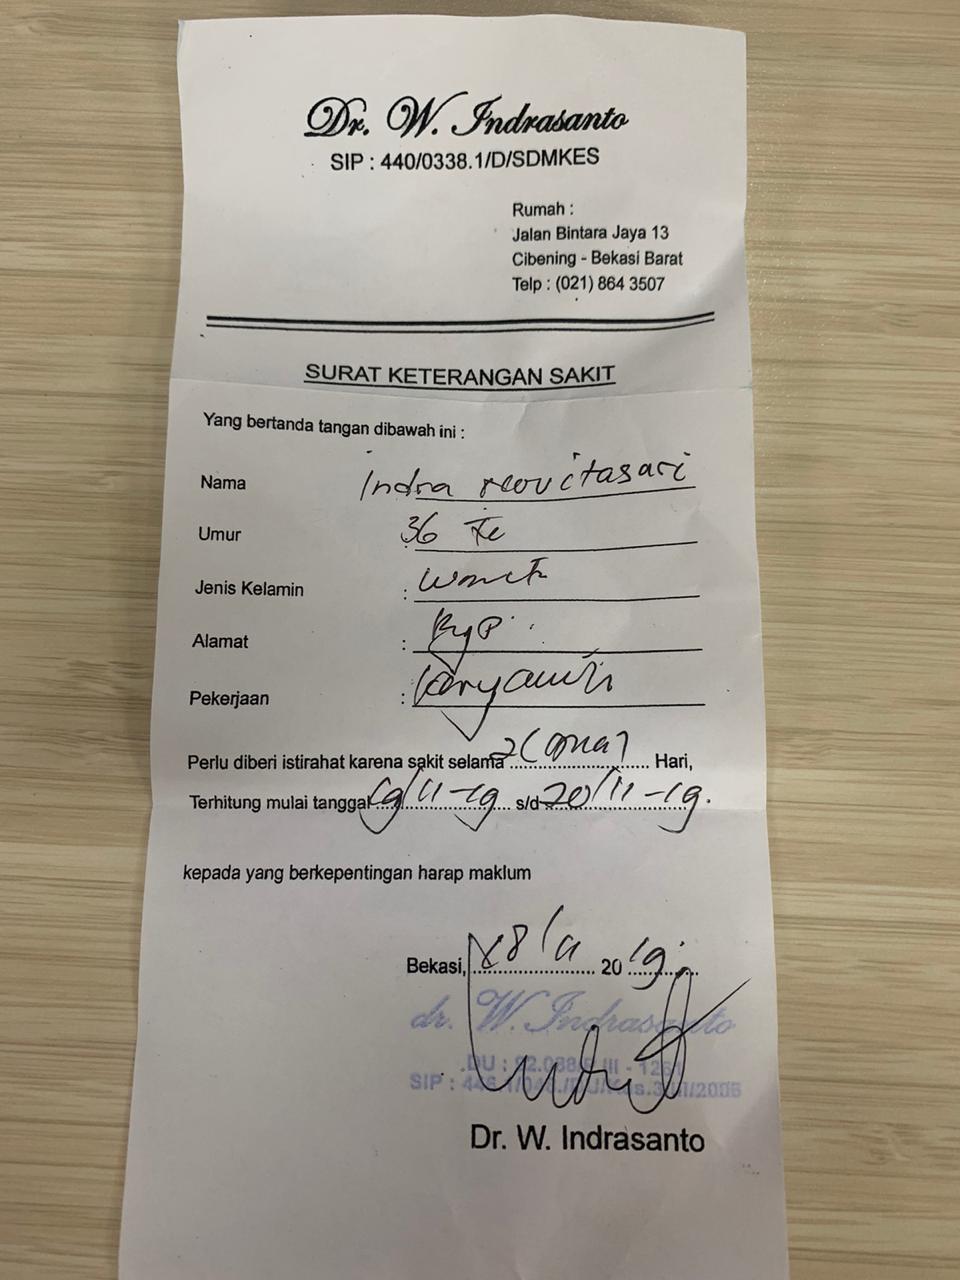 Dr. W. Indrasanto
SIP : 440/0338.1/D/SDMKES
Rumah :
Jalan Bintara Jaya 13
Cibening - Bekasi Barat
Telp : (021) 864 3507
SURAT KETERANGAN SAKIT
Yang bertanda tangan dibawah ini :
Nama Indra novitasari
Umur 36
Jenis Kelamin :
Alamat :
Pekerjaan :
Perlu diberi istirahat karena sakit selama 2 ( Hari,
Terhitung mulai tanggal 19/11-19 s/d 20/11-19.
kepada yang berkepentingan harap maklum
Bekasi, 18/11 2019
dr. W. Indrasanto
SIP :
Dr. W. Indrasanto